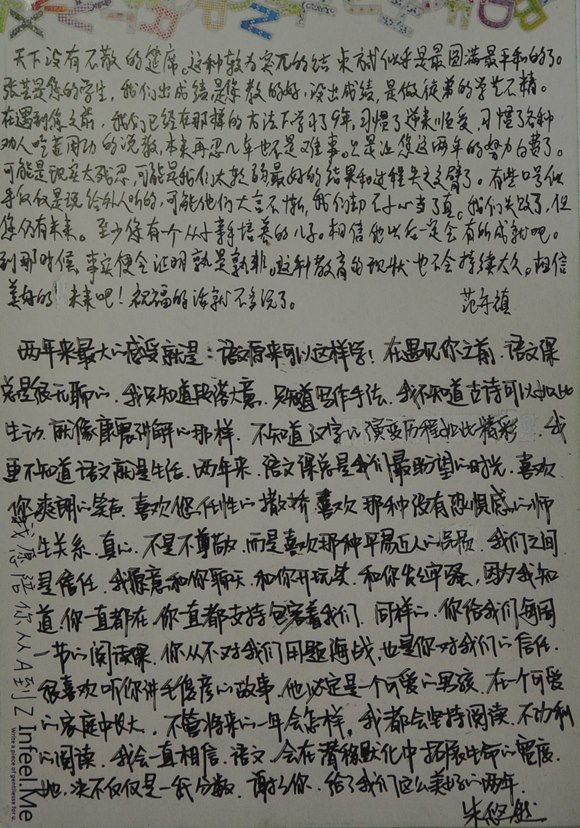 天下没有不散的筵席。这种较为突兀的结束或许似乎是最圆满最平和的了。
我若是您的学生，我们出成绩是您教的好，没出成绩，是做徒弟的学艺不精。
在遇到您之前，我们已经在那样的方法下学习了9年，习惯了逆来顺受，习惯了各种
劝人吃苦用功的说教，本来再忍几年也不是难事。只是让您这两年的努力白费了。
可能是现实太残忍，可能是我们太软弱，最好的结果和过程失之交臂了。有些口号似
乎仅仅是说给外人听的，可能他们大言不惭，我们却不小心当了真。我们失败了，但
您仍有未来。至少您有一个从小亲手培养的儿子。相信他以后一定会有所成就吧。
到那时候，事实便会证明孰是孰非。这种教育的现状也不会持续太久。相信
美好的未来吧！祝福的话就不多说了。
两年来最大的感受就是：语文原来可以这样学！在遇见你之前，语文课
总是很无聊的，我只知道段落大意，只知道写作手法，我不知道古诗可以如此
生动，就像康震讲解的那样，不知道汉字的演变历程如此精彩，我
更不知道语文就是生活。两年来，语文课总是我们最盼望的时光，喜欢
您爽朗的笑声，喜欢您任性的撒娇，喜欢那种没有恐惧感的师
生关系，真的，不是不尊敬，而是喜欢那种平易近人的品质，我们之间
是信任，我愿意和你聊天，和你开玩笑，和你发牢骚，因为我知
道，你一直都在，你一直都支持包容着我们，同样的，你给我们每周
一节的阅读课，你从不对我们用题海战，也是你对我们的信任。
很喜欢听你讲毛俊彦的故事，他必定是个可爱的男孩，在一个可爱
的家庭中长大，不管将来的一年会怎样，我都会坚持阅读，不功利
的阅读，我会一直相信，语文，会在潜移默化中拓展生命的宽度，
她，决不仅仅是一纸分数，谢谢你，给了我们这么美好的两年。
朱悠然
我想陪你从A到Z Infeel Me